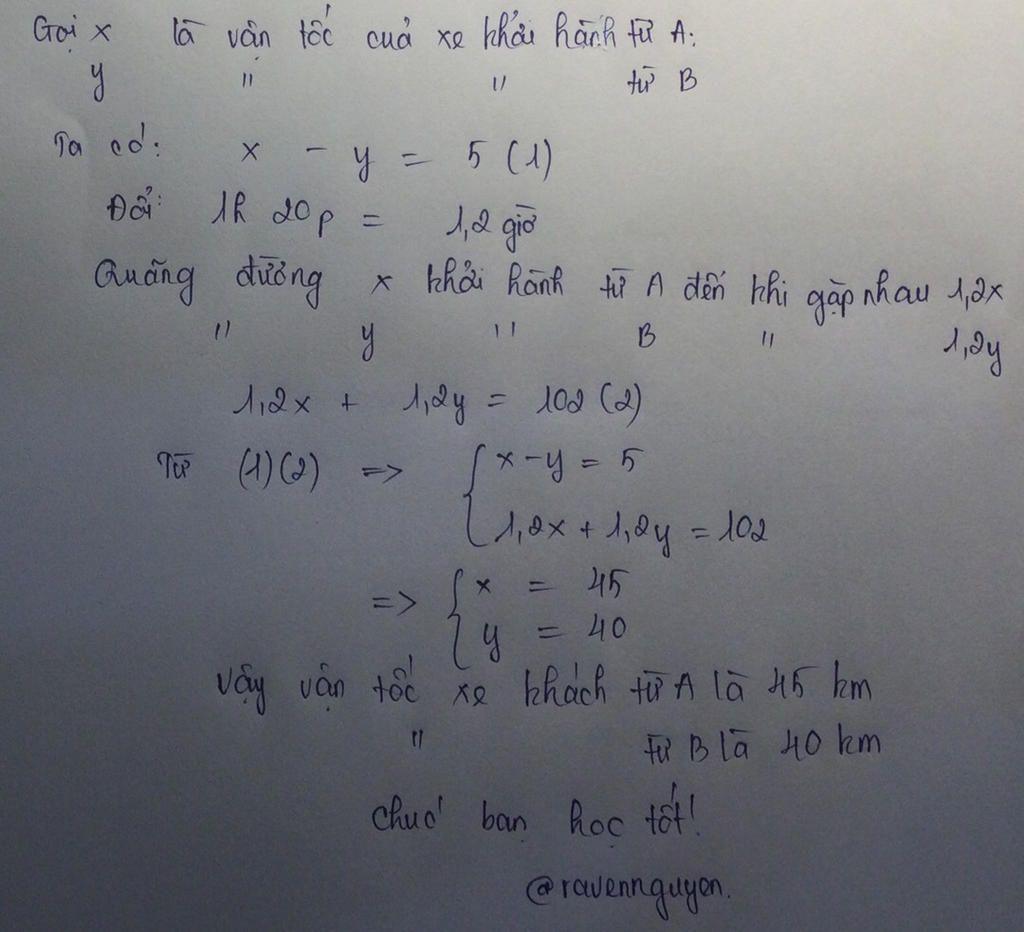 Gọi x là vận tốc cuả xe khởi hành từ A:
y " " từ B
Ta có: x - y = 5 (1)
Đổi: 1h 20p = 1,2 giờ
Quãng đường x khởi hành từ A đến khi gặp nhau 1,2x
" y " B " 1,2y
1,2x + 1,2y = 102 (2)
Từ (1)(2) => { x - y = 5
1,2x + 1,2y = 102
=> { x = 45
y = 40
Vậy vận tốc xe khách từ A là 45 km
" từ B là 40 km
Chuć bạn học tốt!
@ravennguyen.